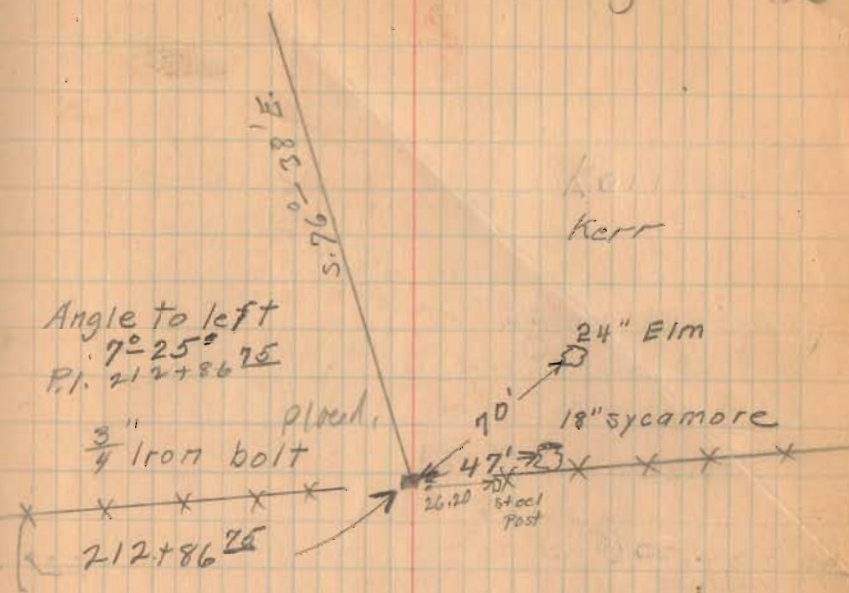 S. 76°-38' E.
Kerr
Kerr
Angle to left
7°-25'
P.I. 212+86 75
24" Elm
placed.
3/4" Iron bolt
70'
18" sycamore
47'
26.20
steel
Post
212+86 75